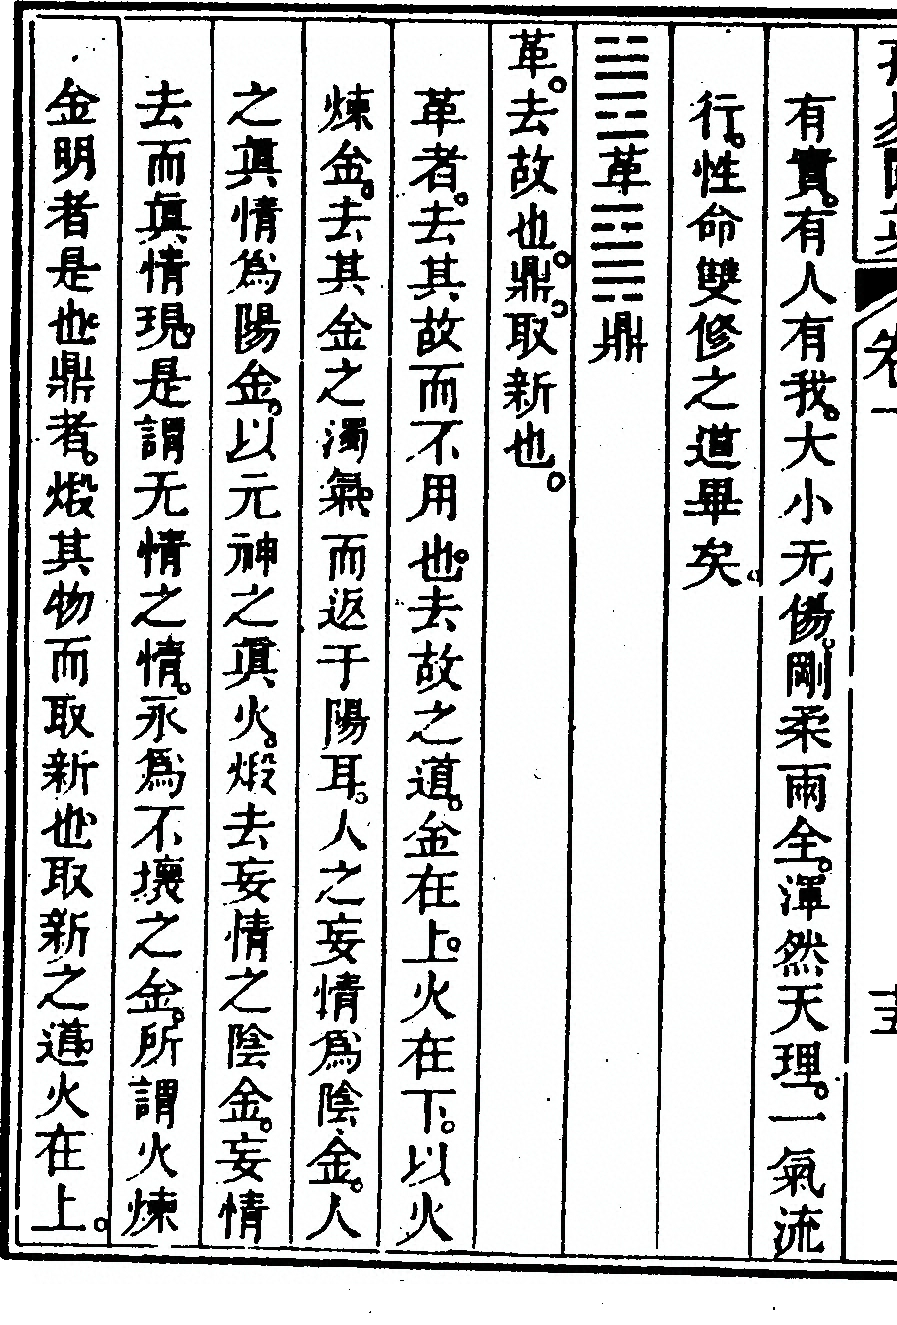 有實。有人有我。大小无傷。剛柔兩全。渾然天理。一氣流
行。性命雙修之道畢矣。
䷰革䷱鼎
革。去故也。鼎。取新也。
革者。去其故而不用也。去故之道。金在上。火在下。以火
煉金。去其金之濁氣。而返于陽耳。人之妄情爲陰金。人
之眞情爲陽金。以元神之眞火。煅去妄情之陰金。妄情
去而眞情現。是謂无情之情。永爲不壞之金。所謂火煉
金明者是也。鼎者。煅其物而取新也。取新之道。火在上。